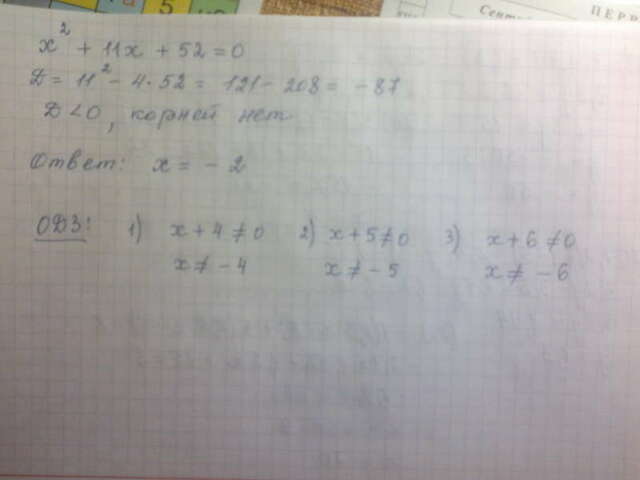 5
Сент
ПЕРВ
x² + 11x + 52 = 0
D = 11² - 4·52 = 121 - 208 = -87
D < 0, корней нет
Ответ: x = - 2
ОДЗ: 1) x + 4 ≠ 0 2) x + 5 ≠ 0 3) x + 6 ≠ 0
x ≠ - 4 x ≠ - 5 x ≠ - 6